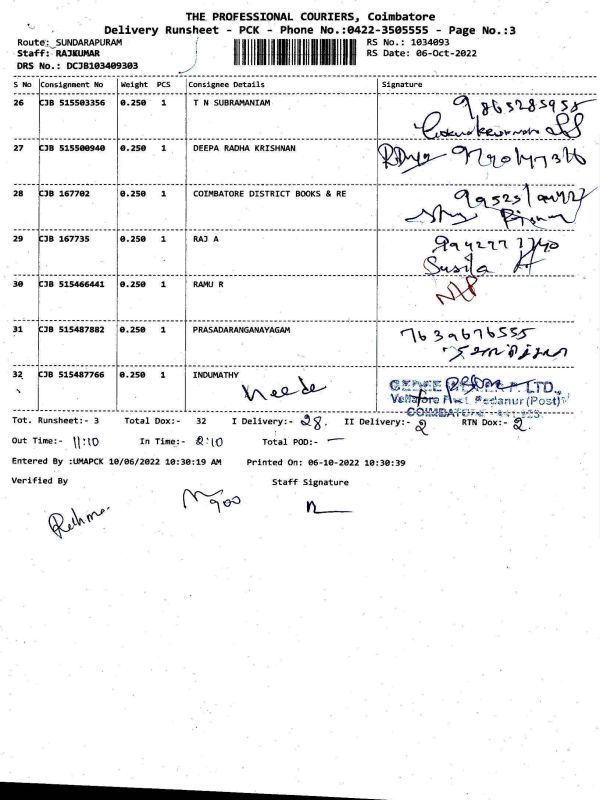 THE PROFESSIONAL COURIERS, Coimbatore
Delivery Runsheet - PCK - Phone No.:0422-3505555 - Page No.:3
Route: SUNDARAPURAM RS No.: 1034093
Staff: RAJKUMAR RS Date: 06-Oct-2022
DRS No.: DCJB103409303
S No Consignment No Weight PCS Consignee Details Signature
26 CJB 515503356 0.250 1 T N SUBRAMANIAM 9865285955
27 CJB 515500940 0.250 1 DEEPA RADHA KRISHNAN
28 CJB 167702 0.250 1 COIMBATORE DISTRICT BOOKS & RE
29 CJB 167735 0.250 1 RAJ A
Susila
30 CJB 515466441 0.250 1 RAMU R
31 CJB 515487882 0.250 1 PRASADARANGANAYAGAM 7639676555
32 CJB 515487766 0.250 1 INDUMATHY
LTD.,
(Post)
Tot. Runsheet:- 3 Total Dox:- 32 I Delivery:- 28 II Delivery:- 2 RTN Dox:- 2
Out Time:- 11:10 In Time:- 2:10 Total POD:- —
Entered By :UMAPCK 10/06/2022 10:30:19 AM Printed On: 06-10-2022 10:30:39
Verified By Staff Signature